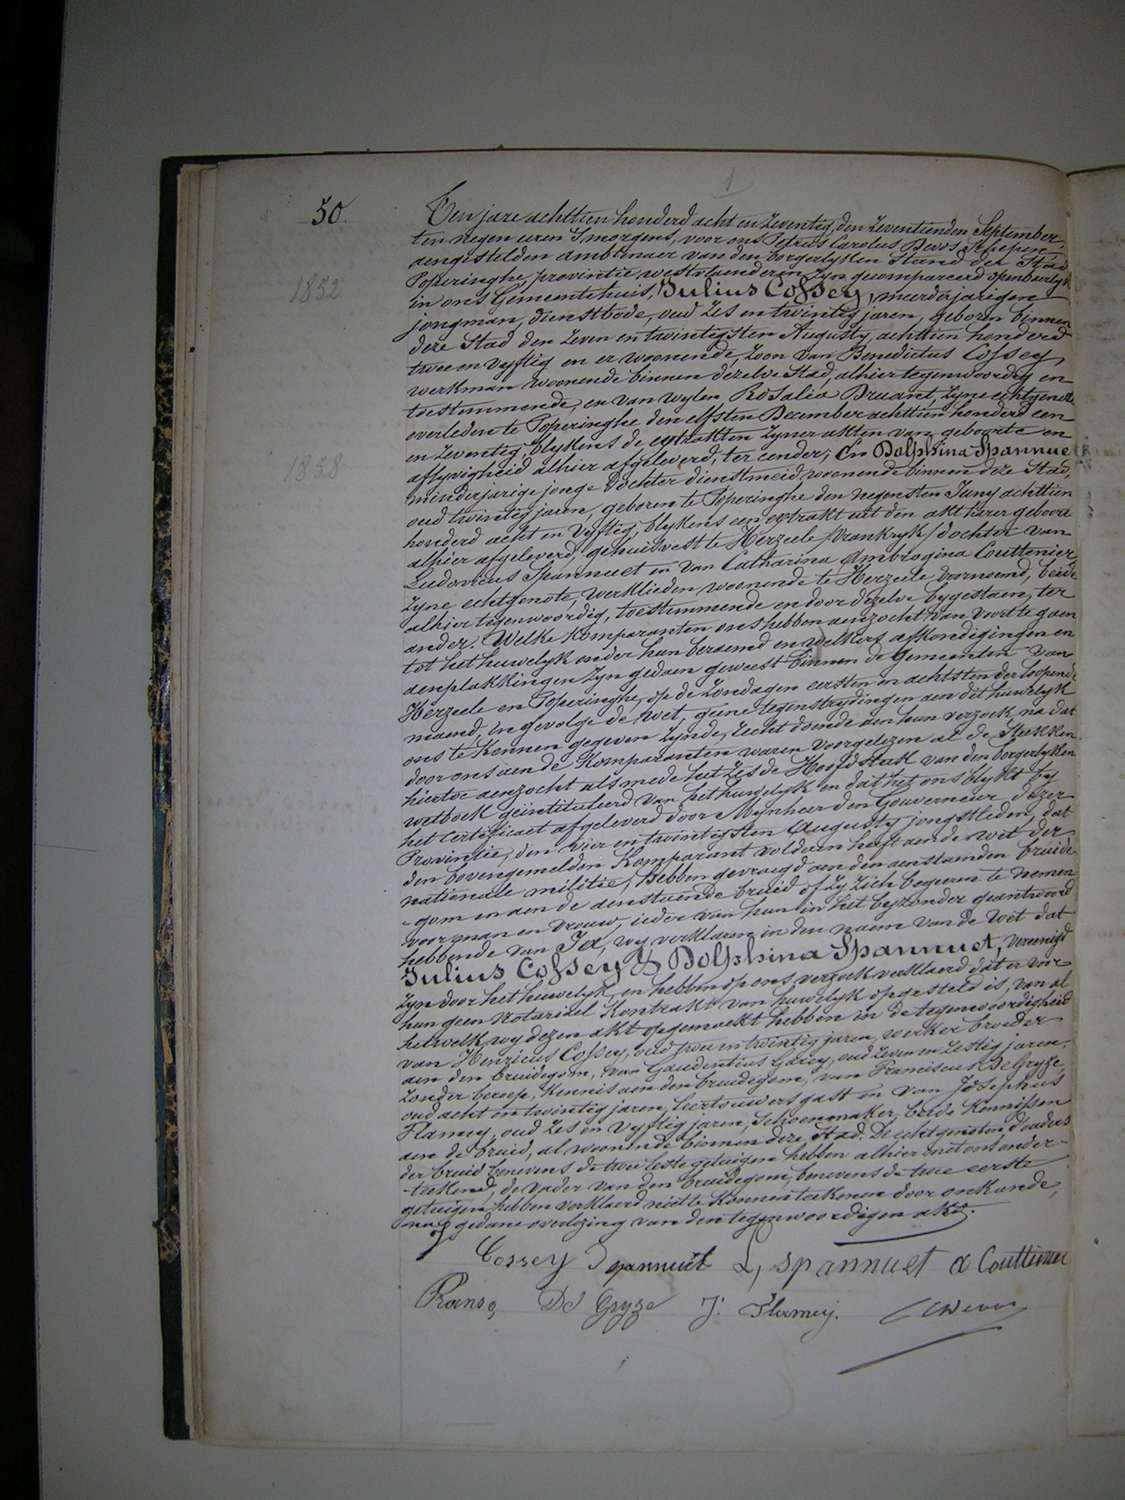 50.
1852
1858
Ten jare achttien honderd acht en zeventig, den zeventienden September,
ten negen uren 's morgens, voor ons Petrus Carolus Devos, Schepen
aengestelden ambtenaer van den borgerlyken stand der Stad
Poperinghe, provintie westvlaenderen, zyn gecompareerd openbaerlyk
in ons Gemeentehuis, Julius Cossey, meerderjarigen
jongman, dienstbode, oud zes en twintig jaren, geboren binnen
deze Stad den zeven en twintigsten Augusty achttien honderd
twee en vyftig en er woonende, zoon van Benedictus Cossey,
werkman woonende binnen dezelve Stad, alhier tegenwoordig en
toestemmende, en van wylen Rosalia Druant, zyne echtgenote
overleden te Poperinghe den elfsten December achttien honderd een
en zeventig, blykens de extrakten zyner akten van geboorte en
aflyvigheid alhier afgeleverd, ter eender; En Dolphina Spannuet
minderjarige jonge dochter dienstmeid, woonende binnen deze Stad,
oud twintig jaren, geboren te Poperinghe den negensten Juny achttien
honderd acht en vyftig, blykens een extrakt uit den akt harer geboorte
alhier afgeleverd, gehuisvest te Herzeele /Vrankryk/ dochter van
Ludovicus Spannuet en van Catharina Ambrogina Couttenier,
zyne echtgenote, werklieden, woonende te Herzeele voornoemd, beide
alhier tegenwoordig, toestemmende en door dezelve bygestaen, ter
ander. Welke komparanten ons hebben aenzocht van voort te gaen
tot het huwelyk onder hun beraemd en welkers afkondigingen en
aenplakkingen zyn gedaen geweest binnen de Gemeenten van
Herzeele en Poperinghe, op de zondagen eersten en achtsten der loopende
maend, in gevolge de wet, geene tegenstrydingen aen dit huwelyk
ons te kennen gegeven zynde, recht doende aen hun verzoek, na dat
door ons aen de komparanten waren voorgelezen al de stukken
hiertoe aenzocht alsmede het zesde Hoofdstuk van den borgerlyken
wetboek geintituleerd van het huwelyk en dat het ons blykt by
het certificaet afgeleverd door Mynheer den Gouverneur dezer
Provintie, den vier en twintigsten Augusty jongstleden, dat
den bovengemelden komparant voldaen heeft aen de wet der
nationale militie, Hebben gevraegd aen den aenstaenden bruide-
gom en aen de aenstaende bruid of zy zich begeren te nemen
voor man en vrouw, ieder van hun in het byzonder geantwoord
hebbende van Ja, wy verklaren in den naem van de Wet dat
Julius Cossey & Dolphina Spannuet, vereenigd
zyn door het huwelyk, en hebben op ons verzoek verklaerd dat er voor
hun geen Notarieel kontrakt van huwelyk opgesteld is, van al
hetwelk wy dezen akt opgemaekt hebben in de tegenwoordigheid
van Henricus Cossey, oud twee en twintig jaren, werker broeder
aen den bruidegom, van Gaudentius oud zeven en zestig jaren,
zonder beroep, kennis aen den bruidegom, van Franciscus DeGryze,
oud acht en twintig jaren, leertouwersgast en van Josephus
Flamey, oud zes en vyftig jaren, schoenmaker, beide kennissen
aen de bruid, al woonende binnen deze Stad. De echtgenoten d'ouders
der bruid benevens de twee leste getuigen hebben alhier met ons onder-
teekend, de vader van den bruidegom, benevens de twee eerste
getuigen hebben verklaerd niet te konnen teekenen door onkunde,
na gedane overlezing van den tegenwoordigen akt.
Cossey Spannuet L, spannuet C Couttenier
Frans De Gryze J. Flamey. C Devos